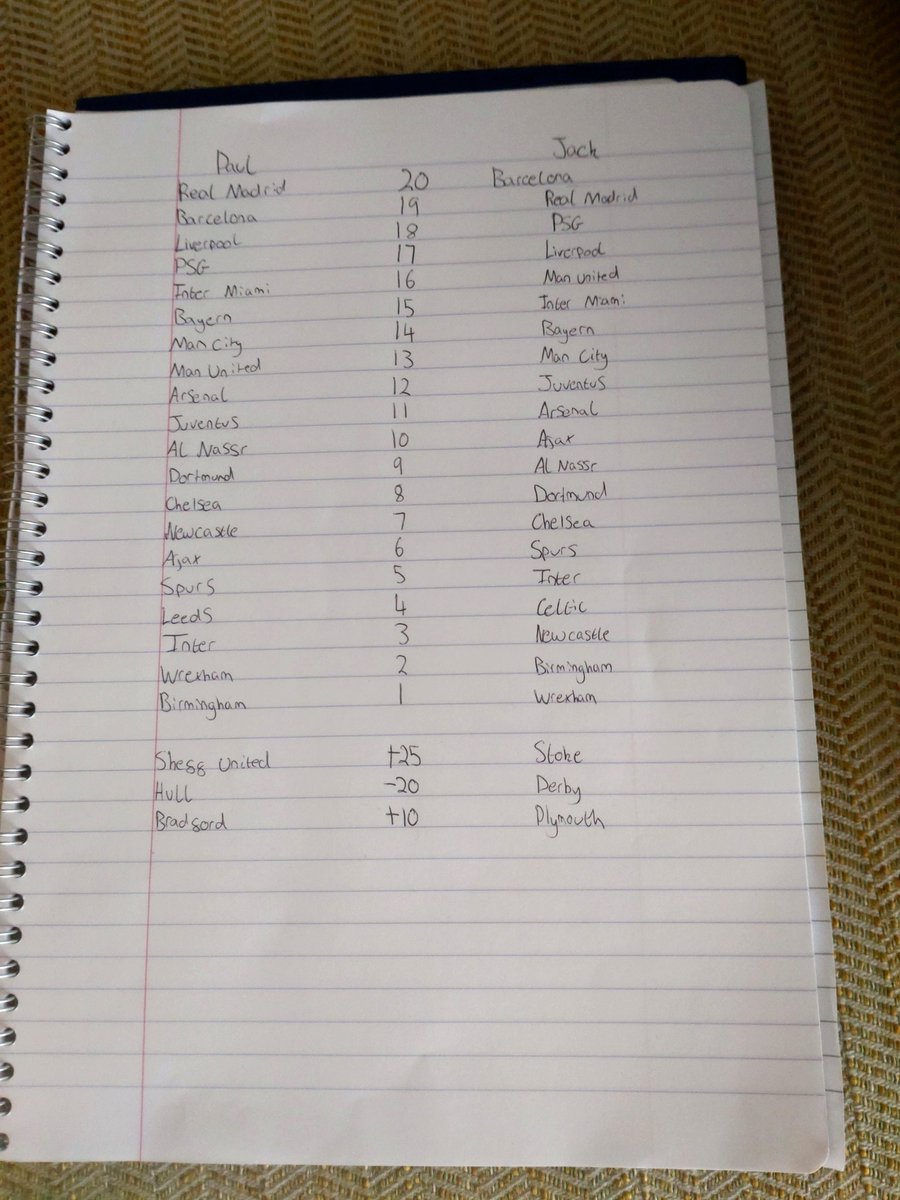 Paul Jack
Real Madrid 20 Barcelona
Barcelona 19 Real Madrid
Liverpool 18 PSG
PSG 17 Liverpool
Inter Miami 16 Man United
Bayern 15 Inter Miami
Man City 14 Bayern
Man United 13 Man City
Arsenal 12 Juventus
Juventus 11 Arsenal
AL Nassr 10 Ajax
Dortmund 9 AL Nassr
Chelsea 8 Dortmund
Newcastle 7 Chelsea
Ajax 6 Spurs
Spurs 5 Inter
Leeds 4 Celtic
Inter 3 Newcastle
Wrexham 2 Birmingham
Birmingham 1 Wrexham
Sheff United +25 Stoke
Hull -20 Derby
Bradford +10 Plymouth